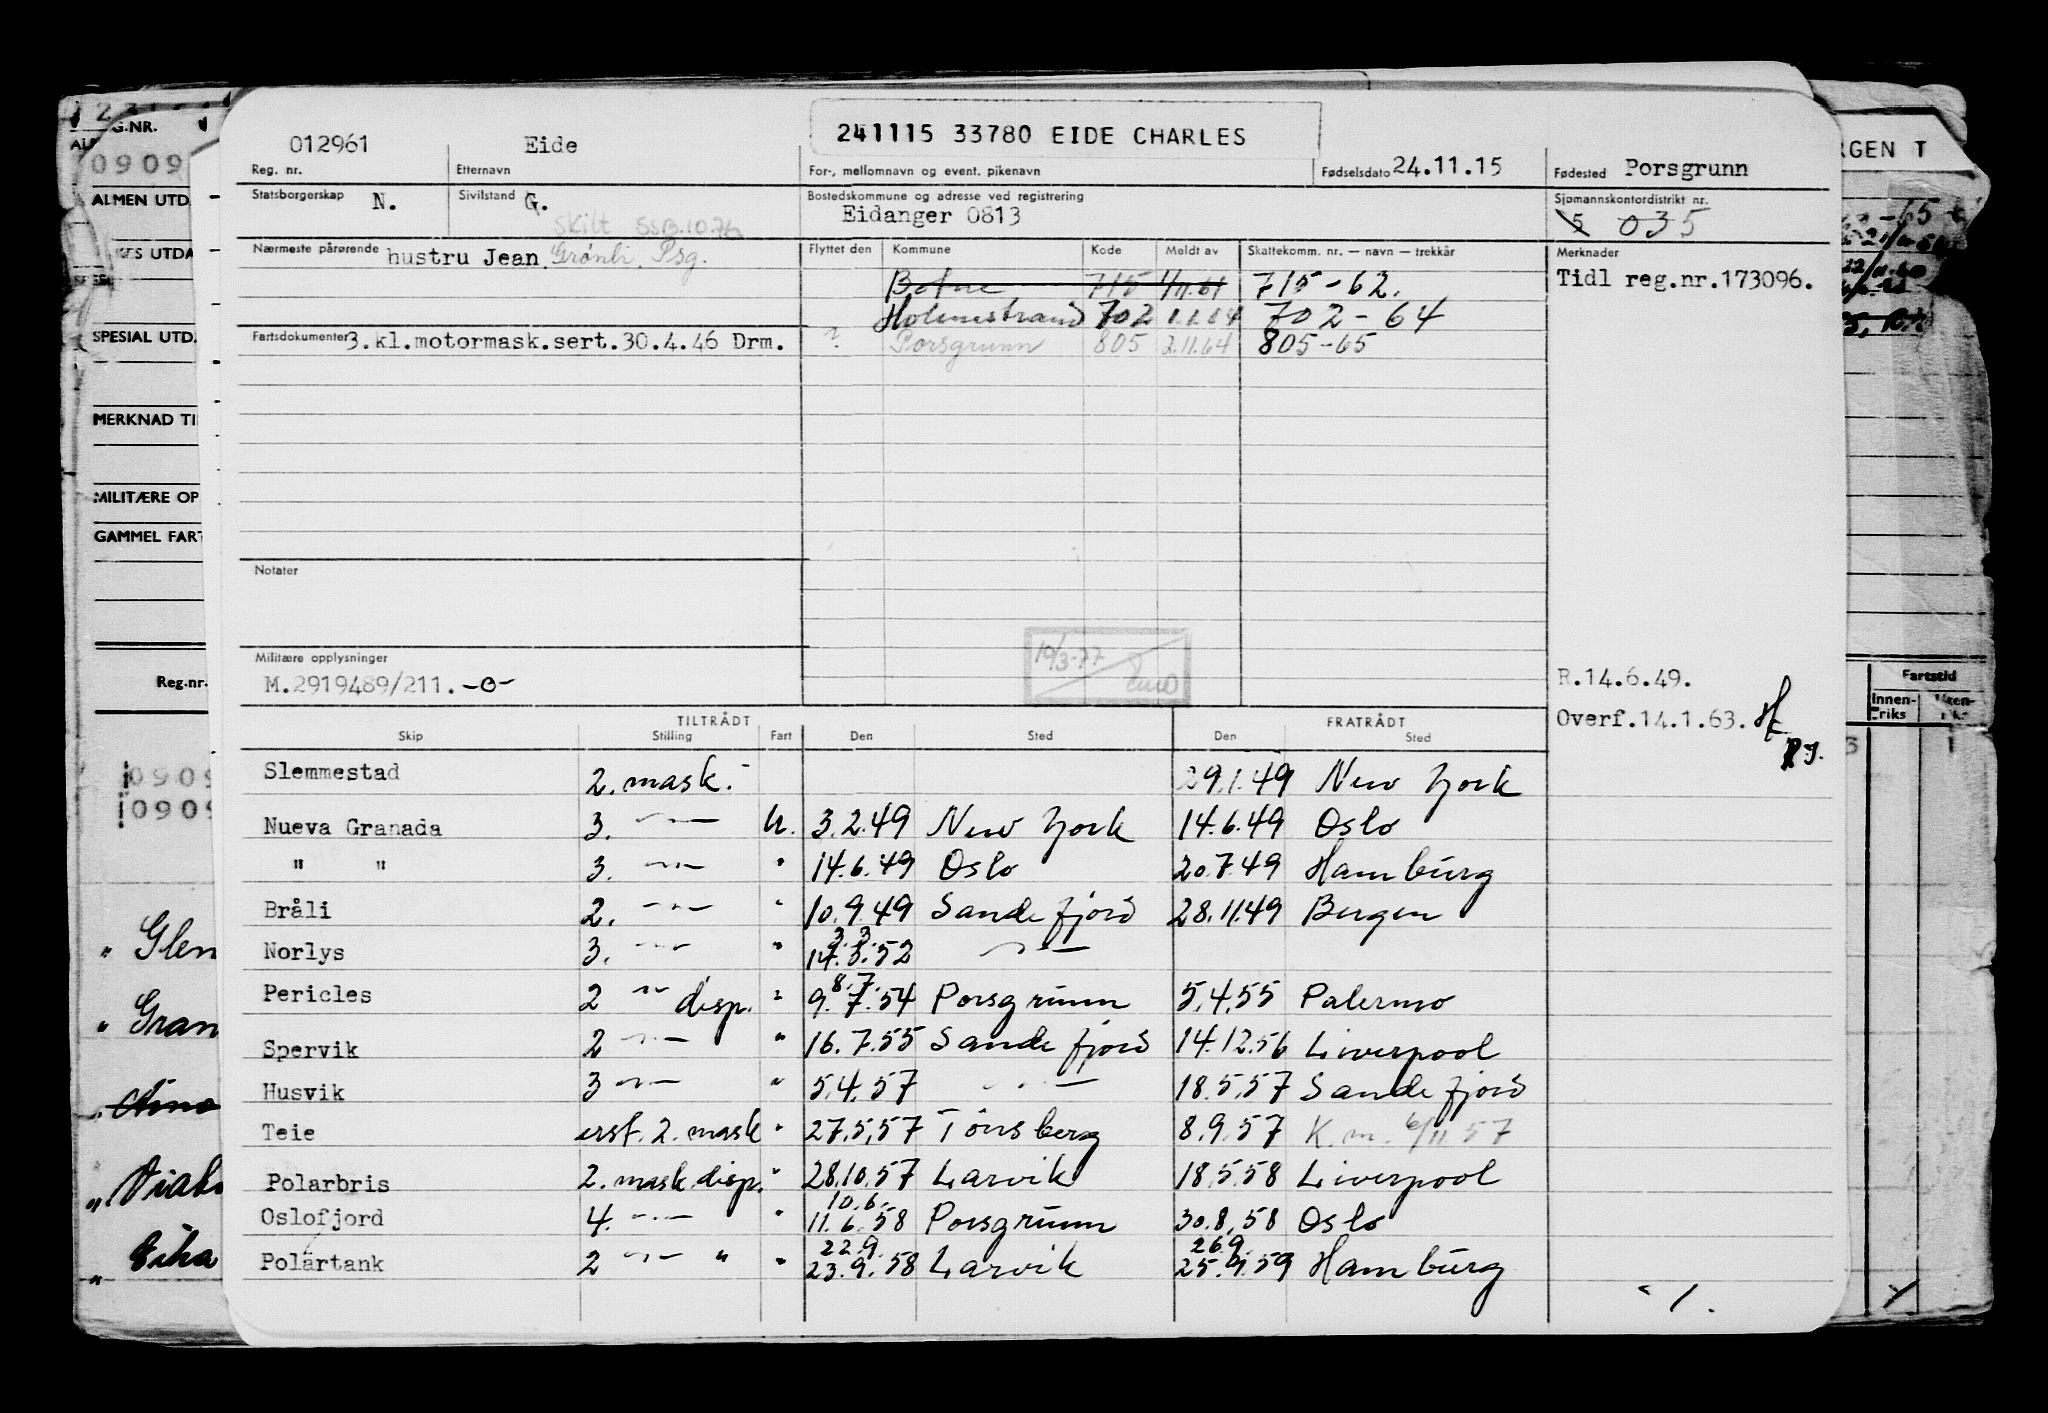 012961 Eide 241115 33780 EIDE CHARLES
Reg. nr. Etternavn For-, mellomnavn og event. pikenavn Fødselsdato 24.11.15 Fødested Porsgrunn
Statsborgerskap N. Sivilstand G. Bostedskommune og adresse ved registrering Sjømannskontordistrikt nr.
skilt Eidanger 0813 5 035
Nærmeste pårørende hustru Jean Grønli, Psg. Flyttet den Kommune Kode Meldt av Skattekomm. nr. — navn — trekkår Merknader
Botne 715 1/11.61 715-62. Tidl reg.nr.173096.
Holmestrand 702 1.1.64 702-64
Fartsdokumenter 3.kl.motormask.sert.30.4.46 Drm. ? Porsgrunn 805 2.11.64 805-65
Notater
Militære opplysninger 19/3-77
M.2919489/211. -o- R.14.6.49.
Overf.14.1.63.
TILTRÅDT FRATRÅDT
Skip Stilling Fart Den Sted Den Sted
Slemmestad 2. mask. 29.1.49 New York
Nueva Granada 3. —"— U. 3.2.49 New York 14.6.49 Oslo
" " 3. —"— " 14.6.49 Oslo 20.7.49 Hamburg
Bråli 2. —"— " 10.9.49 Sandefjord 28.11.49 Bergen
3.3.
Norlys 3. —"— " 14.3.52 —"—
8.7.
Pericles 2 —"— disp. " 9.7.54 Porsgrunn 5.4.55 Palermo
Spervik 2 —"— " 16.7.55 Sandefjord 14.12.56 Liverpool
Husvik 3 —"— " 5.4.57 —"— 18.5.57 Sandefjord
Teie erst. 2. mask " 27.5.57 Tønsberg 8.9.57 K.m. 6/11 57
Polarbris 2. mask.disp. " 28.10.57 Larvik 18.5.58 Liverpool
10.6.
Oslofjord 4. —"— " 11.6.58 Porsgrunn 30.8.58 Oslo
22.9. 26.9.
Polartank 2 —"— " " 23.9.58 Larvik 25.9.59 Hamburg
G.NR.
0909
ALMEN UTD.
ES UTDA
SPESIAL UTD.
MERKNAD TI
MILITÆRE OP
GAMMEL FART
Reg.nr.
0909
0909
" Glen
" Gran
RGEN T
Fartstid
Innen-